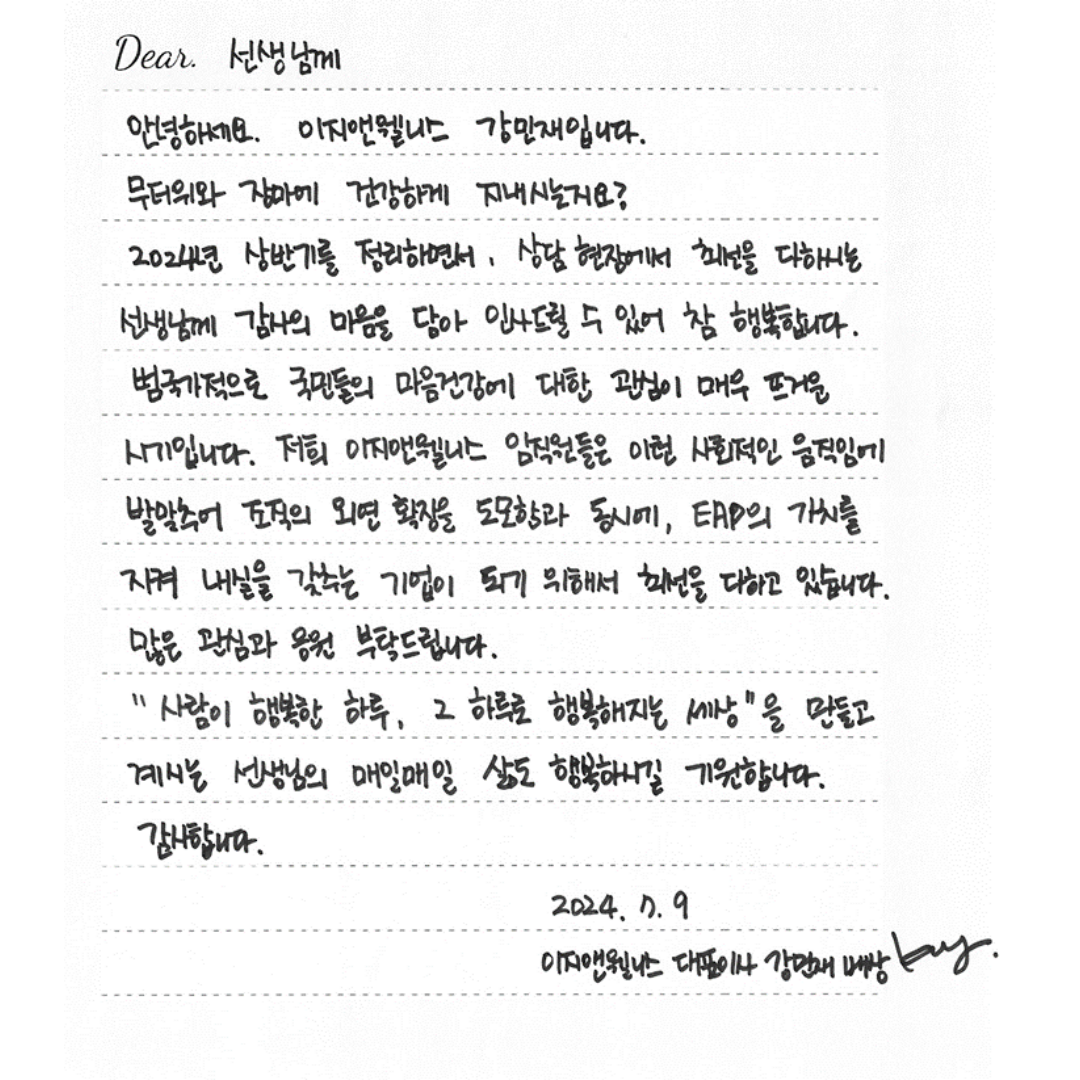 Dear. 선생님께
안녕하세요. 이지앤웰니스 강민재입니다.
무더위와 장마에 건강하게 지내시는지요?
2024년 상반기를 정리하면서, 상담 현장에서 최선을 다하시는
선생님께 감사의 마음을 담아 인사드릴 수 있어 참 행복합니다.
범국가적으로 국민들의 마음건강에 대한 관심이 매우 뜨거운
시기입니다. 저희 이지앤웰니스 임직원들은 이런 사회적인 움직임에
발맞추어 조직의 외연 확장을 도모함과 동시에, EAP의 가치를
지켜 내실을 갖추는 기업이 되기 위해서 최선을 다하고 있습니다.
많은 관심과 응원 부탁드립니다.
"사람이 행복한 하루, 그 하루로 행복해지는 세상"을 만들고
계시는 선생님의 매일매일 삶도 행복하시길 기원합니다.
감사합니다.
2024. 7. 9
이지앤웰니스 대표이사 강민재 배상